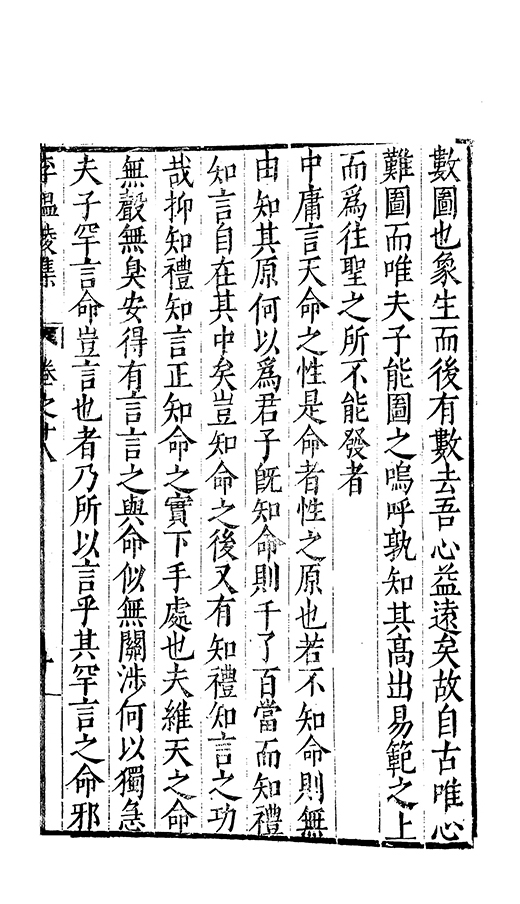 數圖也象生而後有數去吾心益遠矣故自古唯心
難圖而唯夫子能圖之嗚呼孰知其髙出易範之上
而爲往聖之所不能發者
中庸言天命之性是命者性之原也若不知命則無
由知其原何以爲君子旣知命則千了百當而知禮
知言自在其中矣豈知命之後又有知禮知言之功
哉抑知禮知言正知命之實下手處也夫維天之命
無聲無臭安得有言言之與命似無關涉何以獨急
夫子罕言命豈言也者乃所以言乎其罕言之命邪
李温陵集 卷之十八